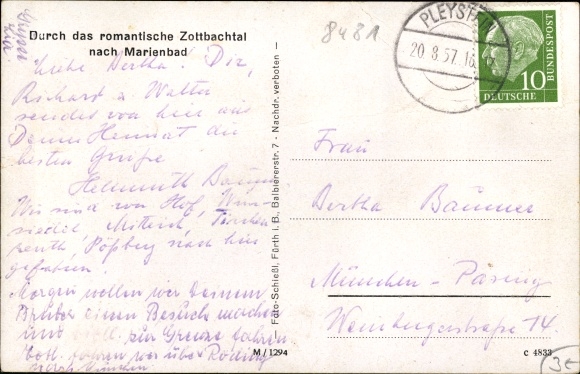 Durch das romantische Zottbachtal
nach Marienbad
8481
Liebe Bertha! Dir,
Richard u. Walter
sendet von hier aus
Deiner Heimat die
besten Grüße
Hellmuth
Wir sind von Hof, Wun-
siedel, Mitterteich, Tirschen
reuth, Pößberg nach hier
gefahren.
Morgen wollen wir deinem
Bruder einen Besuch machen
und zur Grenze fahren
fahren wir über Roding
nach München.
Foto-Schießl, Fürth i. B., Balbiererstr. 7 - Nachdr. verboten
M/1294
PLEYST
20.8.57.16
10
DEUTSCHE
BUNDESPOST
Frau
Bertha Bäumer
München-Pasing
Weinbergerstraße 74.
C 4833
3€